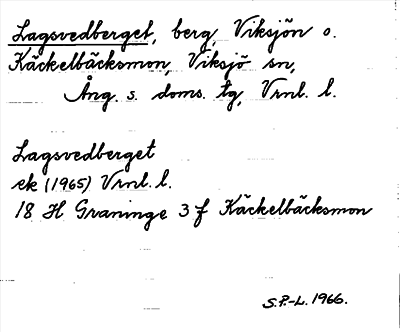 Lagsvedberget, berg, Viksjön o.
Käckelbäcksmon, Viksjö sn,
Ång. s. doms. tg, Vrnl. l.
Lagsvedberget
ek (1965) Vrnl. l.
18 H Graninge 3 f Käckelbäcksmon
S.P.-L. 1966.